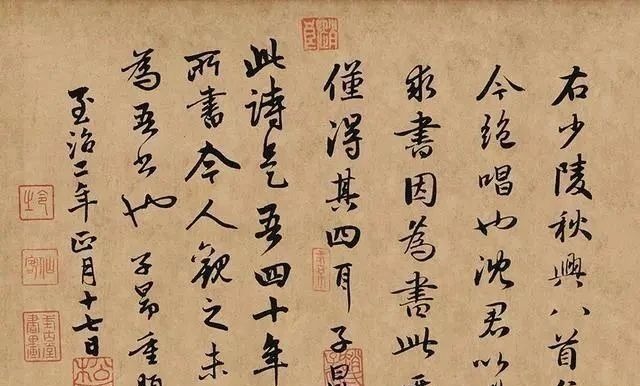 右少陵秋興八首
今絕唱也沈君以
求書因為書此
僅得其四耳子昂
此詩是吾四十年
所書今人觀之未
為吾書也 子昂重題
至治二年正月十七日